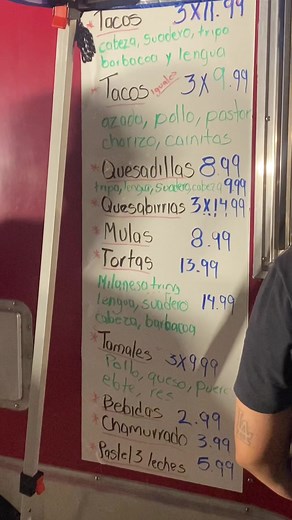 * Tacos 3x11.99
cabeza, Suadero, tripa
barbacoa y lengua
* Tacos 3x9.99
azada, pollo, pastor
chorizo, cainitas
* Quesadillas 8.99
tripa, lengua, Suadero, cabeza 9.99
* Quesabirrias 3x14.99
* Mulas 8.99
* Tortas 13.99
Milanesa tripa
lengua, suadero 14.99
cabeza, barbacoa
* Tamales 3x9.99
Pollo, queso, puerc
elote, res
* Bebidas 2.99
* Chamurrado 3.99
* Pastel 3 leches 5.99